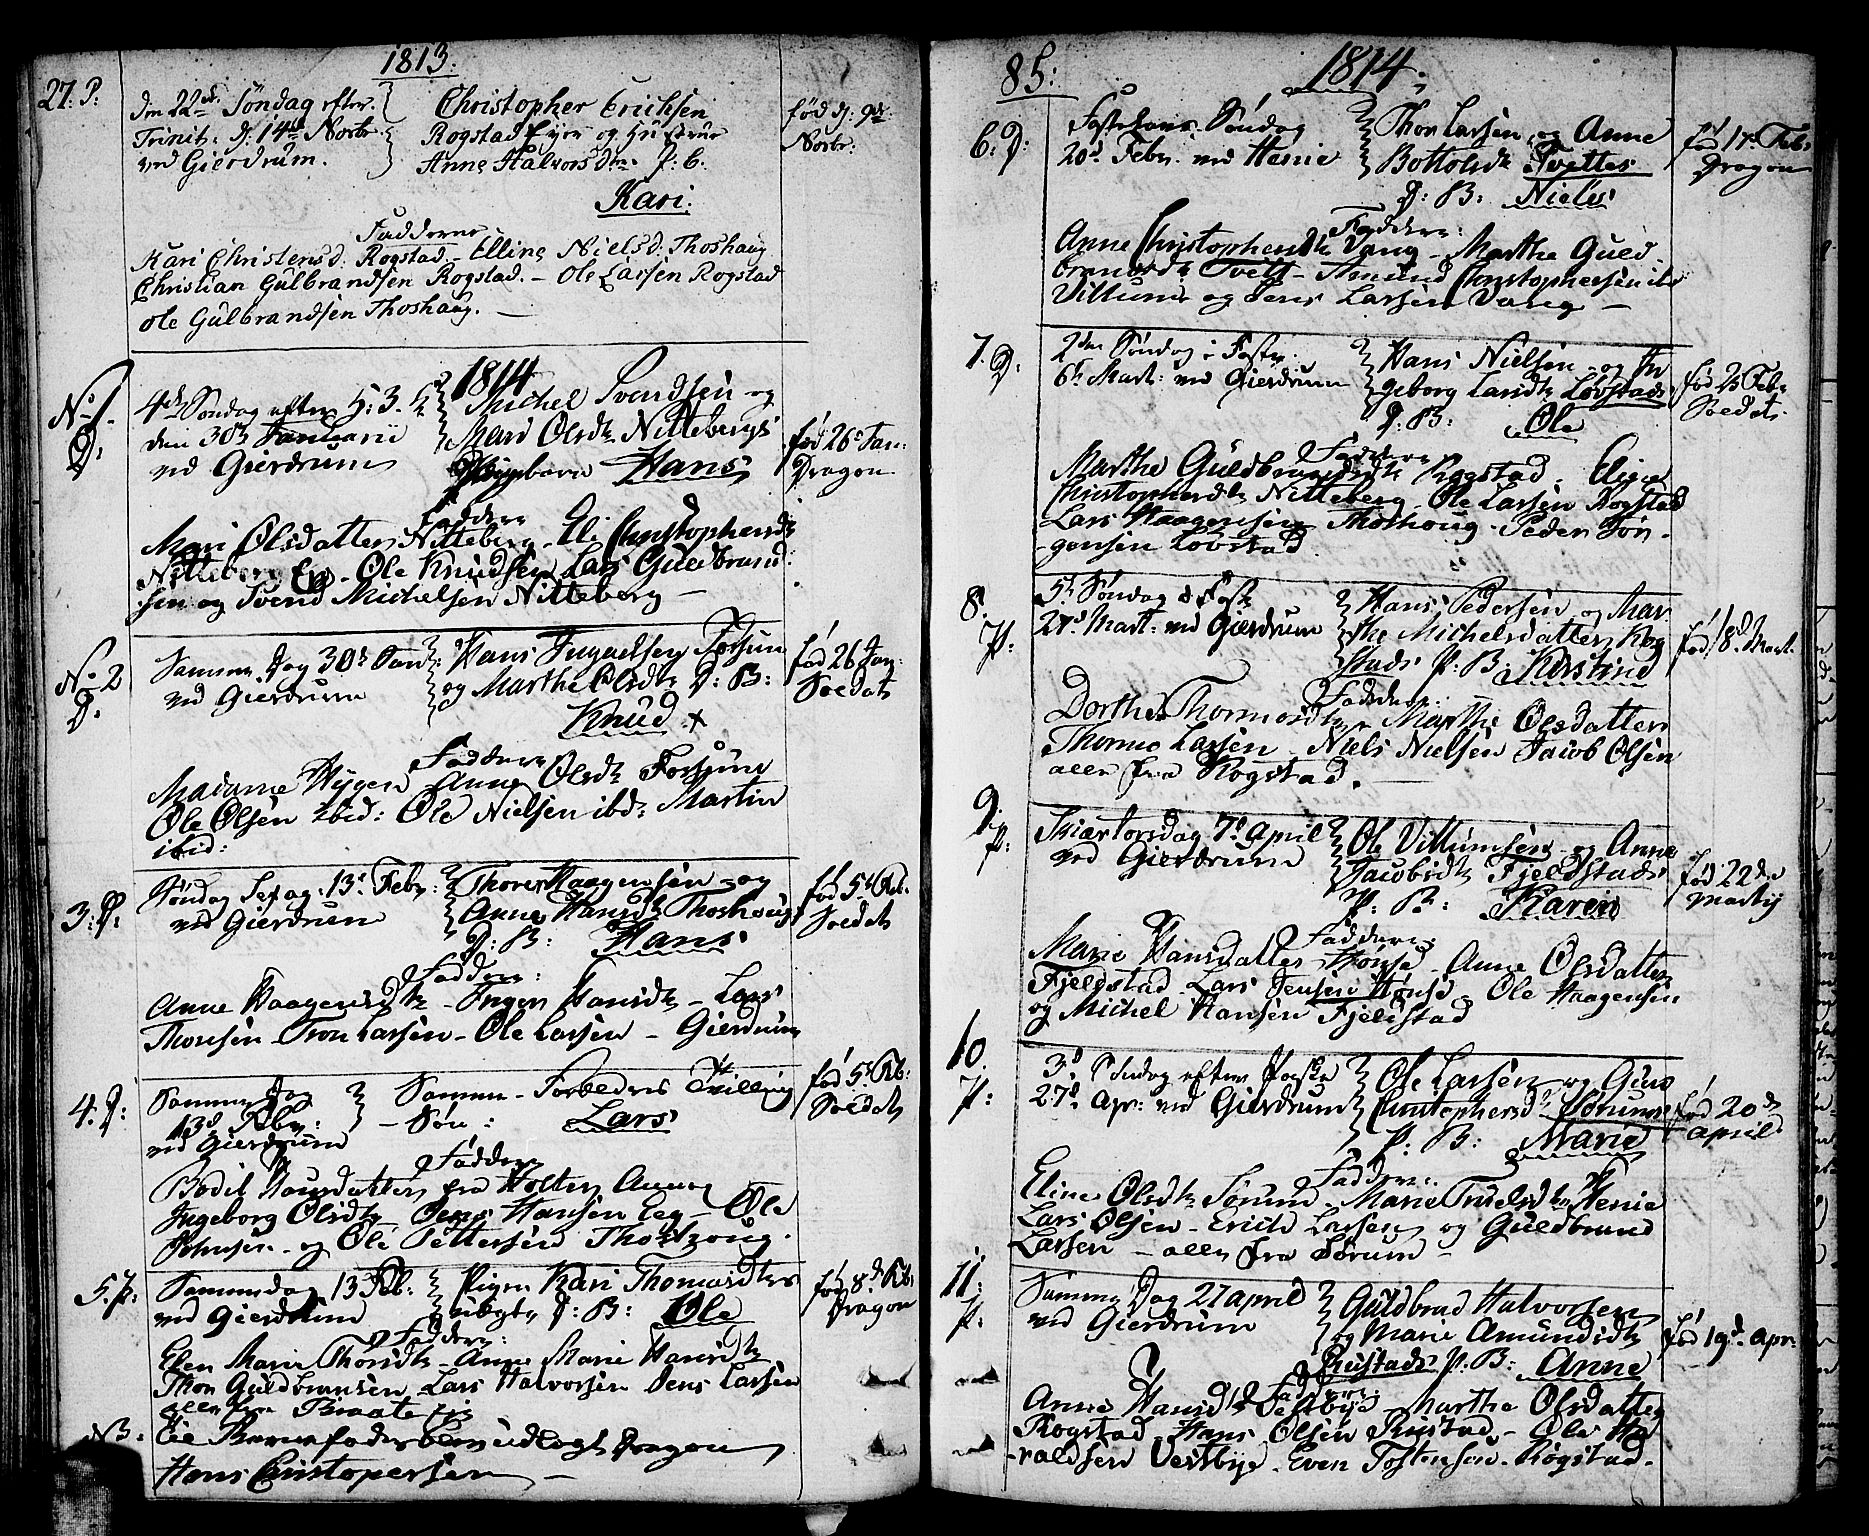 1813.
27. P:
dn 22de Söndag efter
Trinit: d: 14de Novbr
ved Gierdrum.
Christopher Erichsen
Rogstad Eyer og Hustrue
Anne Halvorsdtr. P: B.
Kari:
fød d: 9de
Novbr:
Faddere
Kari Christensd. Rogstad - Elline Nielsd. Thoshaug
Christian Gulbrandsen Rogstad. - Ole Larsen Rogstad
Ole Gulbrandsen Thoshaug. -
1814
No 1.
D:
4de Søndag efter H: 3. K
den 30te Januarii
ved Gierdrum
Michel Svendsen og
Mari Olsdtr Nittebergs
Hans
fød 26 Jan:
Dragon
Faddere
Mari Olsdatter Nitteberg - Eli Christophersdtr
Nitteberg - Ole Knudsen Lars Guldbrand-
sen og Svend Michelsen Nitteberg -
No. 2
D.
Samme Dag 30te Jan:
ved Gierdrum
Hans Ingvelsen
og Marthe Olsdtr D: B:
Knud +
fød 26 Jan:
Soldat
Faddere
Madame Hygen Anne Olsdtr
Ole Olsen ibid: Ole Nielsen ibd: Martin
ibid:
3: D:
Søndag Sexag: 13d Febr:
ved Gierdrum
Thore Haagensen og
Anne Hansdtr Thoshoug
D: B: Hans
fød 5t Feb.
Soldat
Faddere:
Anne Haagensdtr - Inger Hansdtr - Lars
Thorsen Tron Larsen - Ole Larsen - Gierdrum
4. D:
Samme Dag
13d Febr:
ved Gierdrum
Samme Forældres Tvilling
- Søn: Lars
fød 5t Feb:
Soldat
Faddere
Bodil Hansdatter fra Holter
Ingeborg Olsdtr Jens Hansen Eeg - Ole
Johnsen - og Ole Pettersen Thoshoug.
5. P:
Samme Dag 13 Feb:
ved Gierdrum
Pigen Kari Thomasdtr
D: B: Ole
fød 8d Feb
Dragon
Faddere:
Elen Marie Thorsdtr - Anne Marie Hansdtr
Thor Guldbransen Lars Halvorsen Jens Larsen
alle fra Braate
NB: Til Barnefader blev udlagt Dragon
Hans Christopersen -
85: 1814.
6. D:
Fastelavns Søndag
20d Febr. ved Henie
Thor Larsen og Anne
Botholsdtr Tvetter
D: B: Niels
fød 17. Feb.
Dragon
Faddere:
Anne Christophersdtr Vang - Marthe Guld-
brandsdtr Tvett - Amund Christophersen ibd
Villum og Jens Larsen Vang -
7. D:
2den Søndag i Faste:
6te Mart: ved Gierdrum
Hans Nielsen og In
geborg Larsdtr Lovstads
D: B: Ole
fød 25 Febr
Soldat.
Faddere
Marthe Guldbrandsdtr Rogstad.
Christophersdtr Nitteberg Ole Larsen Rogstad
Lars Haagensen Thoshoug - Peder Jør-
gensen Lovstad
8.
P:
5te Søndag i Faste
27d Mart: ved Gierdrum
Hans Pedersen og Mar
the Michelsdatter Rog
stads P. B: Kirstine
fød 18d Mart.
Faddere:
Dorthe Thormodsdtr Marthe Olsdatter
Thormo Larsen - Niels Nielsen Jacob Olsen
alle fra Rogstad.
9.
P:
Skiærtorsdag 7d April
ved Gierdrum
Ole Villumsen og Anne
Jacobsdtr Fjeldstads
P. B: Karen
fød 22de
Martij
Faddere:
Marie Hansdatter Hønsj - Anne Olsdatter
Fjeldstad Lars Jensen Hønsj - Ole Haagensen
og Michel Hansen Fjeldstad
10.
P:
3d Søndag efter Paaske
27d Apr: ved Gierdrum
Ole Larsen og
Christophersdtr Sørum
P. B: Marie
fød 20de
April
Faddere:
Eline Olsdtr Sørum - Marie Henie
Lars Olsen - Erich Larsen og Guldbrand
Larsen - alle fra Sørum -
11:
P.
Samme Dag 27 April
ved Gierdrum
Guldbrand Halvorsen
og Marie Amundsdtr
Rustads P. B: Anne
fød 19d Apr:
Faddere:
Anne Hansdtr Vestbye - Marthe Olsdatter
Rogstad - Hans Olsen Rustad - Ole Ha
raldsen Vestbye - Even Tostensen Rogstad -